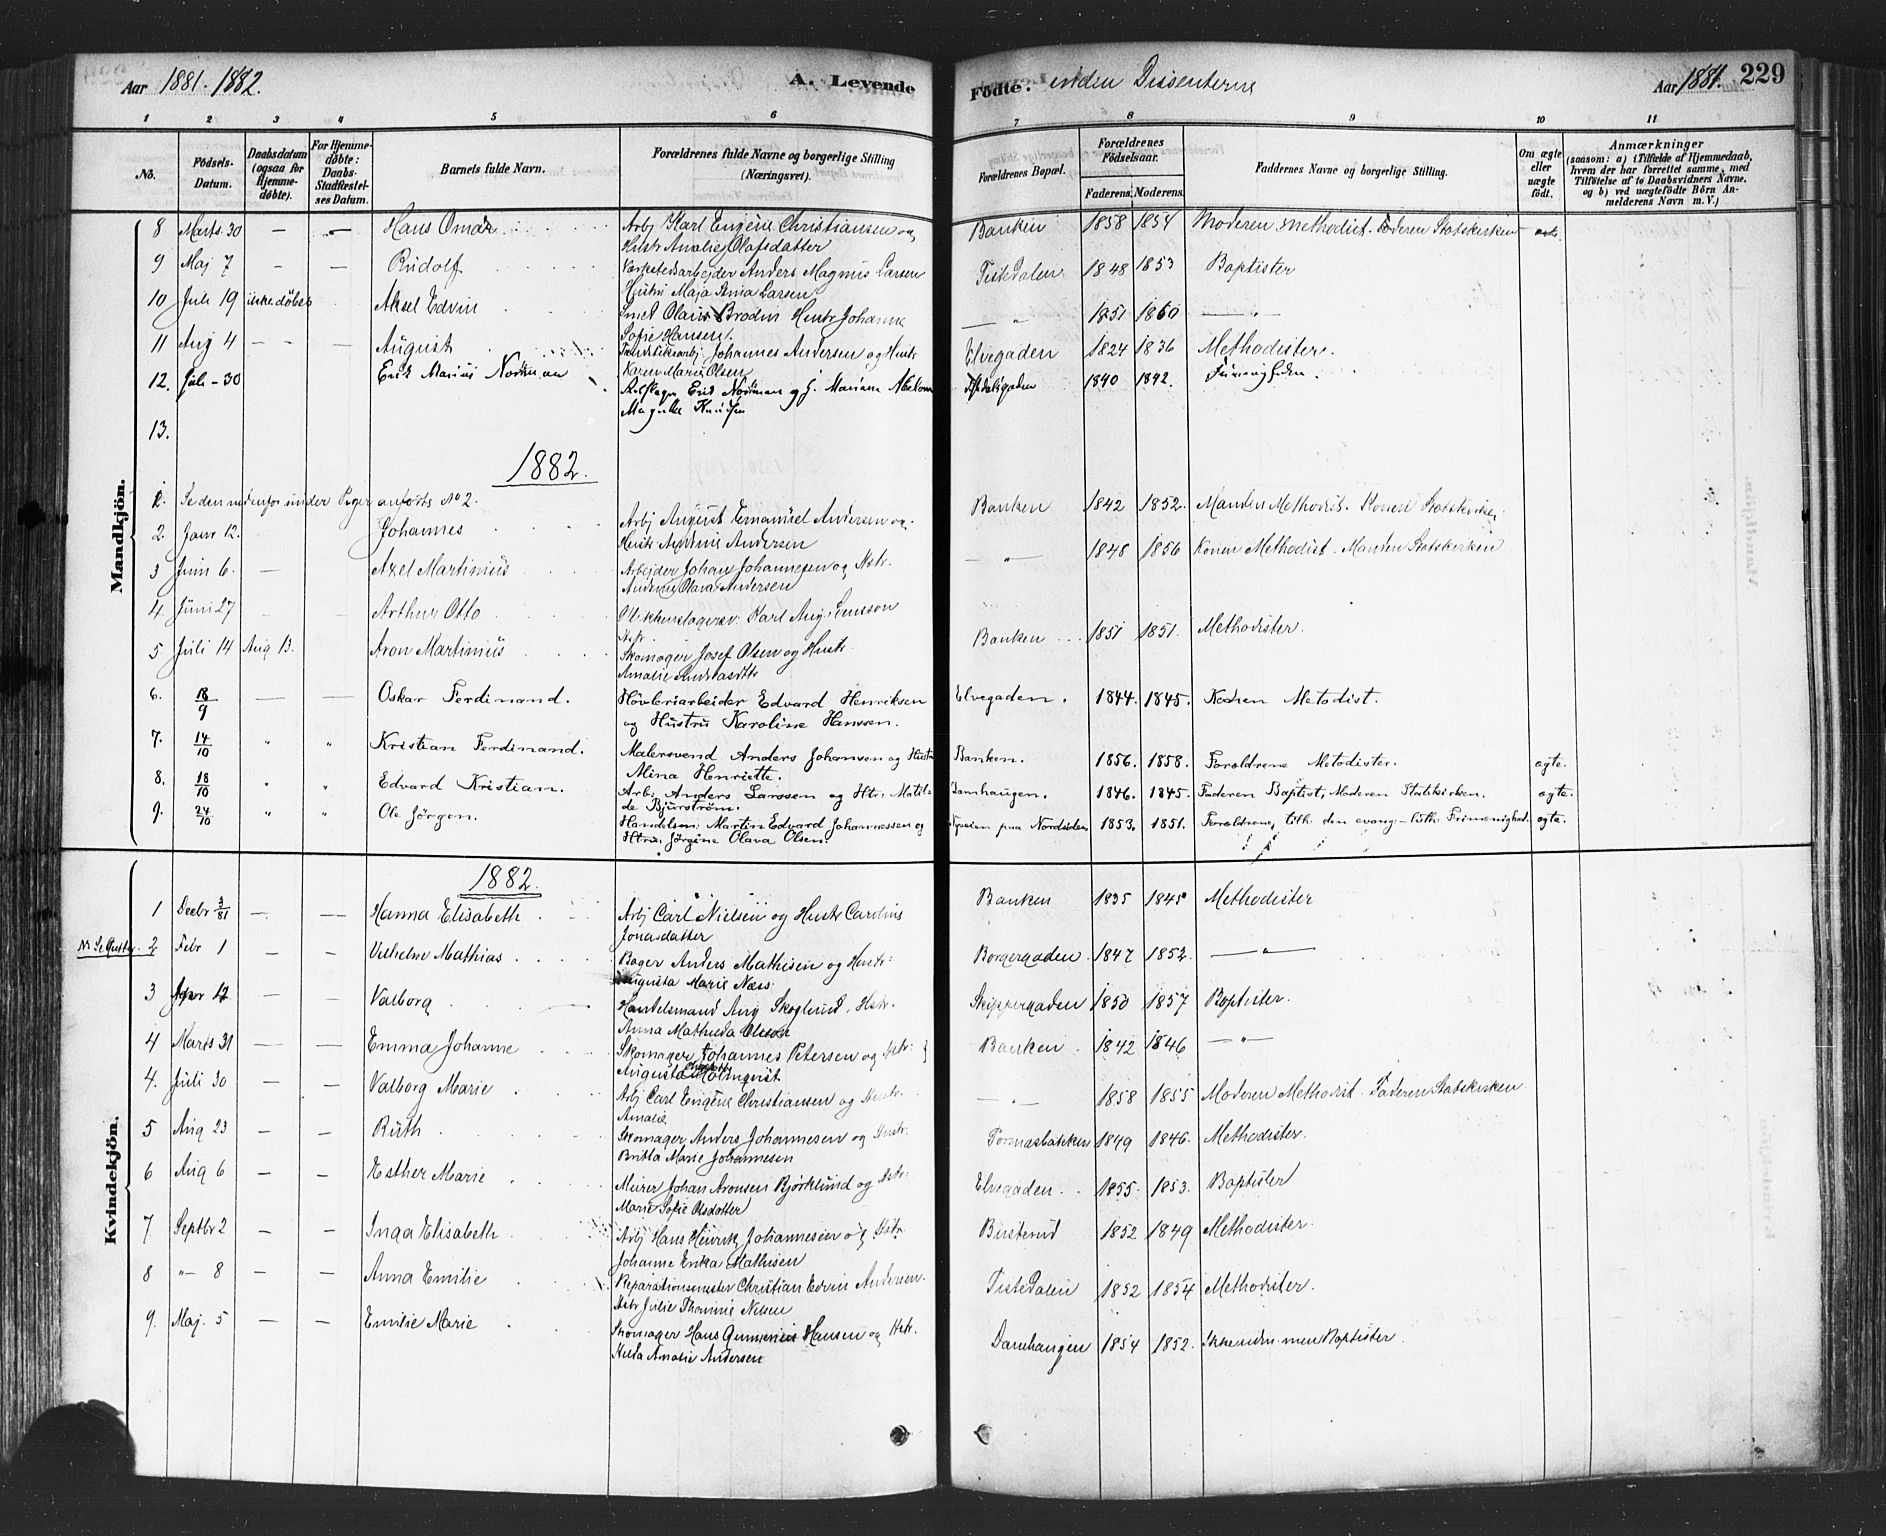 Aar 1881. 1882.
A. Levende
Fødte. inden Dissenterne
Aar 1881.
229
1 2 3 4 5 6 7 8 9 10 11
No.
Fødsels-Datum.
Daabsdatum (ogsaa for Hjemme-døbte).
For Hjemme-døbte: Daabs-Stadfæstel-ses Datum.
Barnets fulde Navn.
Forældrenes fulde Navne og borgerlige Stilling (Næringsvei).
Forældrenes Bopæl.
Forældrenes Fødselsaar.
Faderens. Moderens.
Faddernes Navne og borgerlige Stilling.
Om ægte eller uægte født.
Anmærkninger
(saasom: a) i Tilfælde af Hjemmedaab, hvem der har forrettet samme, med Tilføielse af to Daabsvidners Navne, og b) ved uægtefødte Børn An-melderens Navn m. V.)
Mandkjön.
8 Marts 30 — — Hans Omar Arbj Karl Eugen Christiansen og Banken 1858 1854 Moderen Methodist. Faderen Statskirken
Hustr Amalie Olafsdatter
9 Maj 7 — — Rudolf Værkstedsarbejder Anders Magnus Larsen Tistedalen 1848 1853 Baptister
Hustru Maja Larsen
10 Juli 19 ikke døbt Aksel Edvin Smed Olaus Broden Hustr Johanne — " — 1851 1860 — " —
Sofie Hansen.
11 Aug 4 — — August Johannes Andersen og Hustr Elvegaden 1824 1836 Methodister.
Karen Marie Olsen
12. Juli - 30 Erik Marius Nordman Erik Nordman og H. Mariane 1840 1842. Frimenigheden
13.
1882.
1. Se den nedenfor under Piger anførte No 2. Banken 1842 1852. Manden Methodist. Konen Statskirken
2. Janr 12. Johannes Arbj August Emanuel Andersen og
Hustr Andersen — " — 1848 1856 Konen Methodist. Manden Statskirken
3 Juni 6. — Axel Martinius Arbejder Johan Johannesen og Hstr.
Olava Andersen
4 Juni 27 Arthur Otto Karl Aug. Svensson
Hstr Banken 1851 1851. Methodister.
5 Juli 14 Aug 13. Aron Martinius Skomager Josef Olsen og Hustr
Amalie
6. 18/9 — — Oskar Ferdinand. Høvleriarbeider Edvard Henriksen Elvegaden. 1844. 1845. Konen Metodist.
og Hustru Karoline Hanssen.
7. 14/10 " " Kristian Ferdinand. Malersvend Anders Johansen og Hustr Banken. 1856. 1858. Forældrene Metodister. ægte.
Mina Henriette.
8. 18/10 " " Edvard Kristian. Arb. Anders Larssen og Htr. Matil- Damhaugen. 1846. 1845. Faderen Baptist, Moderen Statskirken. ægte.
de Bjurstrøm.
9. 24/10 " " Ole Jörgen. Handelsm. Martin Edvard Johannessen og paa Nordsiden 1853. 1851. Forældrene, tilh. den evang.-luth. Frimenighed. ægte.
Htru. Jørgine Olava Olsen.
Kvindekjön.
1882.
1 Decbr 3/81 — — Hanna Elisabeth Arbj Carl Nielsen og Hustr Caroline Banken 1835 1845 Methodister
Jonasdatter
2 Febr 1 Vilhelm Mathias Bager Anders Mathisen og Hustr: Borgergaden 1847 1852. — " —
Augusta Marie Næss
3 — — Valborg Handelsmand Aug Skoglund. Hstr. Skippergaden 1850 1857 Baptister.
Anna Mathilda Olsson
4 Marts 31 — — Emma Johanne Skomager Johannes Petersen og Hstr: Banken 1842 1846 — " —
Augusta Holmqvist
4. Juli 30 Valborg Marie Arbj Carl Eugene Christiansen og Hustr. — " — 1858 1855 Moderen Methodist. Faderen Statskirken
Amalie
5 Aug 23 — — Ruth Skomager Anders Johannesen og Hustr. Tomasbakken 1849 1846. Methodister.
Britta Marie Johannesen
6 Aug 6 — — Esther Marie Murer Johan Aronsen Bjørklund og Hstr. Elvegaden 1855 1853. Baptister
Marie Sofie Olsdatter
7 Septbr 2 — — Inga Elisabeth Arbj Hans Henrik Johannesen og Hstr Busterud 1852 1849 Methodister.
Johanne Erika Mathisen
8 "— 8 — — Anna Emilie Reparationsmester Christian Edvin Andersen. Tistedalen 1852 1854 Methodister.
Hstr Julie Thomine Nilsen
9. Maj. 5 — — Emilie Marie Skomager Hans Hansen og Hstr. Damhaugen 1854 1852. Baptister.
Hilda Amalie Andersen